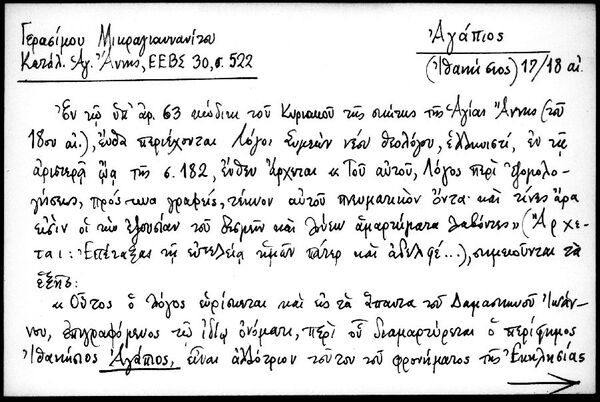 Γερασίμου Μικραγιαννανίτου
Κατάλ. Ἁγ. Ἄννης, ΕΕΒΣ 30, σ. 522
Ἀγάπιος
(Ἰθακήσιος) 17/18 αἰ.
Ἐν τῷ ὑπ' ἀρ. 63 κώδικι τοῦ Κυριακοῦ τῆς σκήτης τῆς Ἁγίας Ἄννης (τοῦ
18ου αἰ.), ἔνθα περιέχονται Λόγοι Συμεὼν νέου θεολόγου, ἑλληνιστί, ἐν τῇ
ἀριστερᾷ ᾤα τῆς σ. 182, ἔνθεν ἄρχεται « Τοῦ αὐτοῦ, Λόγος περὶ ἐξομολο-
γήσεως, πρός τινα γραφείς, τέκνον αὐτοῦ πνευματικὸν ὄντα· καὶ τίνες ἄρα
εἰσὶν οἱ τὴν ἐξουσίαν τοῦ δεσμεῖν καὶ λύειν ἁμαρτήματα λαβόντες» (Ἄρχε-
ται: Ἐπέταξας τῇ εὐτελείᾳ ἡμῶν πάτερ καὶ ἀδελφέ...), σημειοῦνται τὰ
ἑξῆς:
« Οὗτος ὁ λόγος εὑρίσκεται καὶ εἰς τὰ ἅπαντα τοῦ Δαμασκηνοῦ Ἰωάν-
νου, ἐπιγραφόμενος τῷ ἰδίῳ ὀνόματι, περὶ οὗ διαμαρτύρεται ὁ περίφημος
Ἰθακήσιος Ἀγάπιος, εἶναι ἀλλότριον τοῦτον τοῦ φρονήματος τῆς Ἐκκλησίας